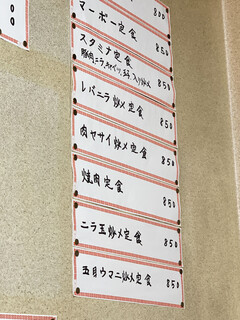 マーボー定食 800
スタミナ定食 850
レバニラ炒メ定食 850
肉ヤサイ炒メ定食 850
焼肉定食 850
ニラ玉炒メ定食 850
五目ウマニ炒メ定食 850